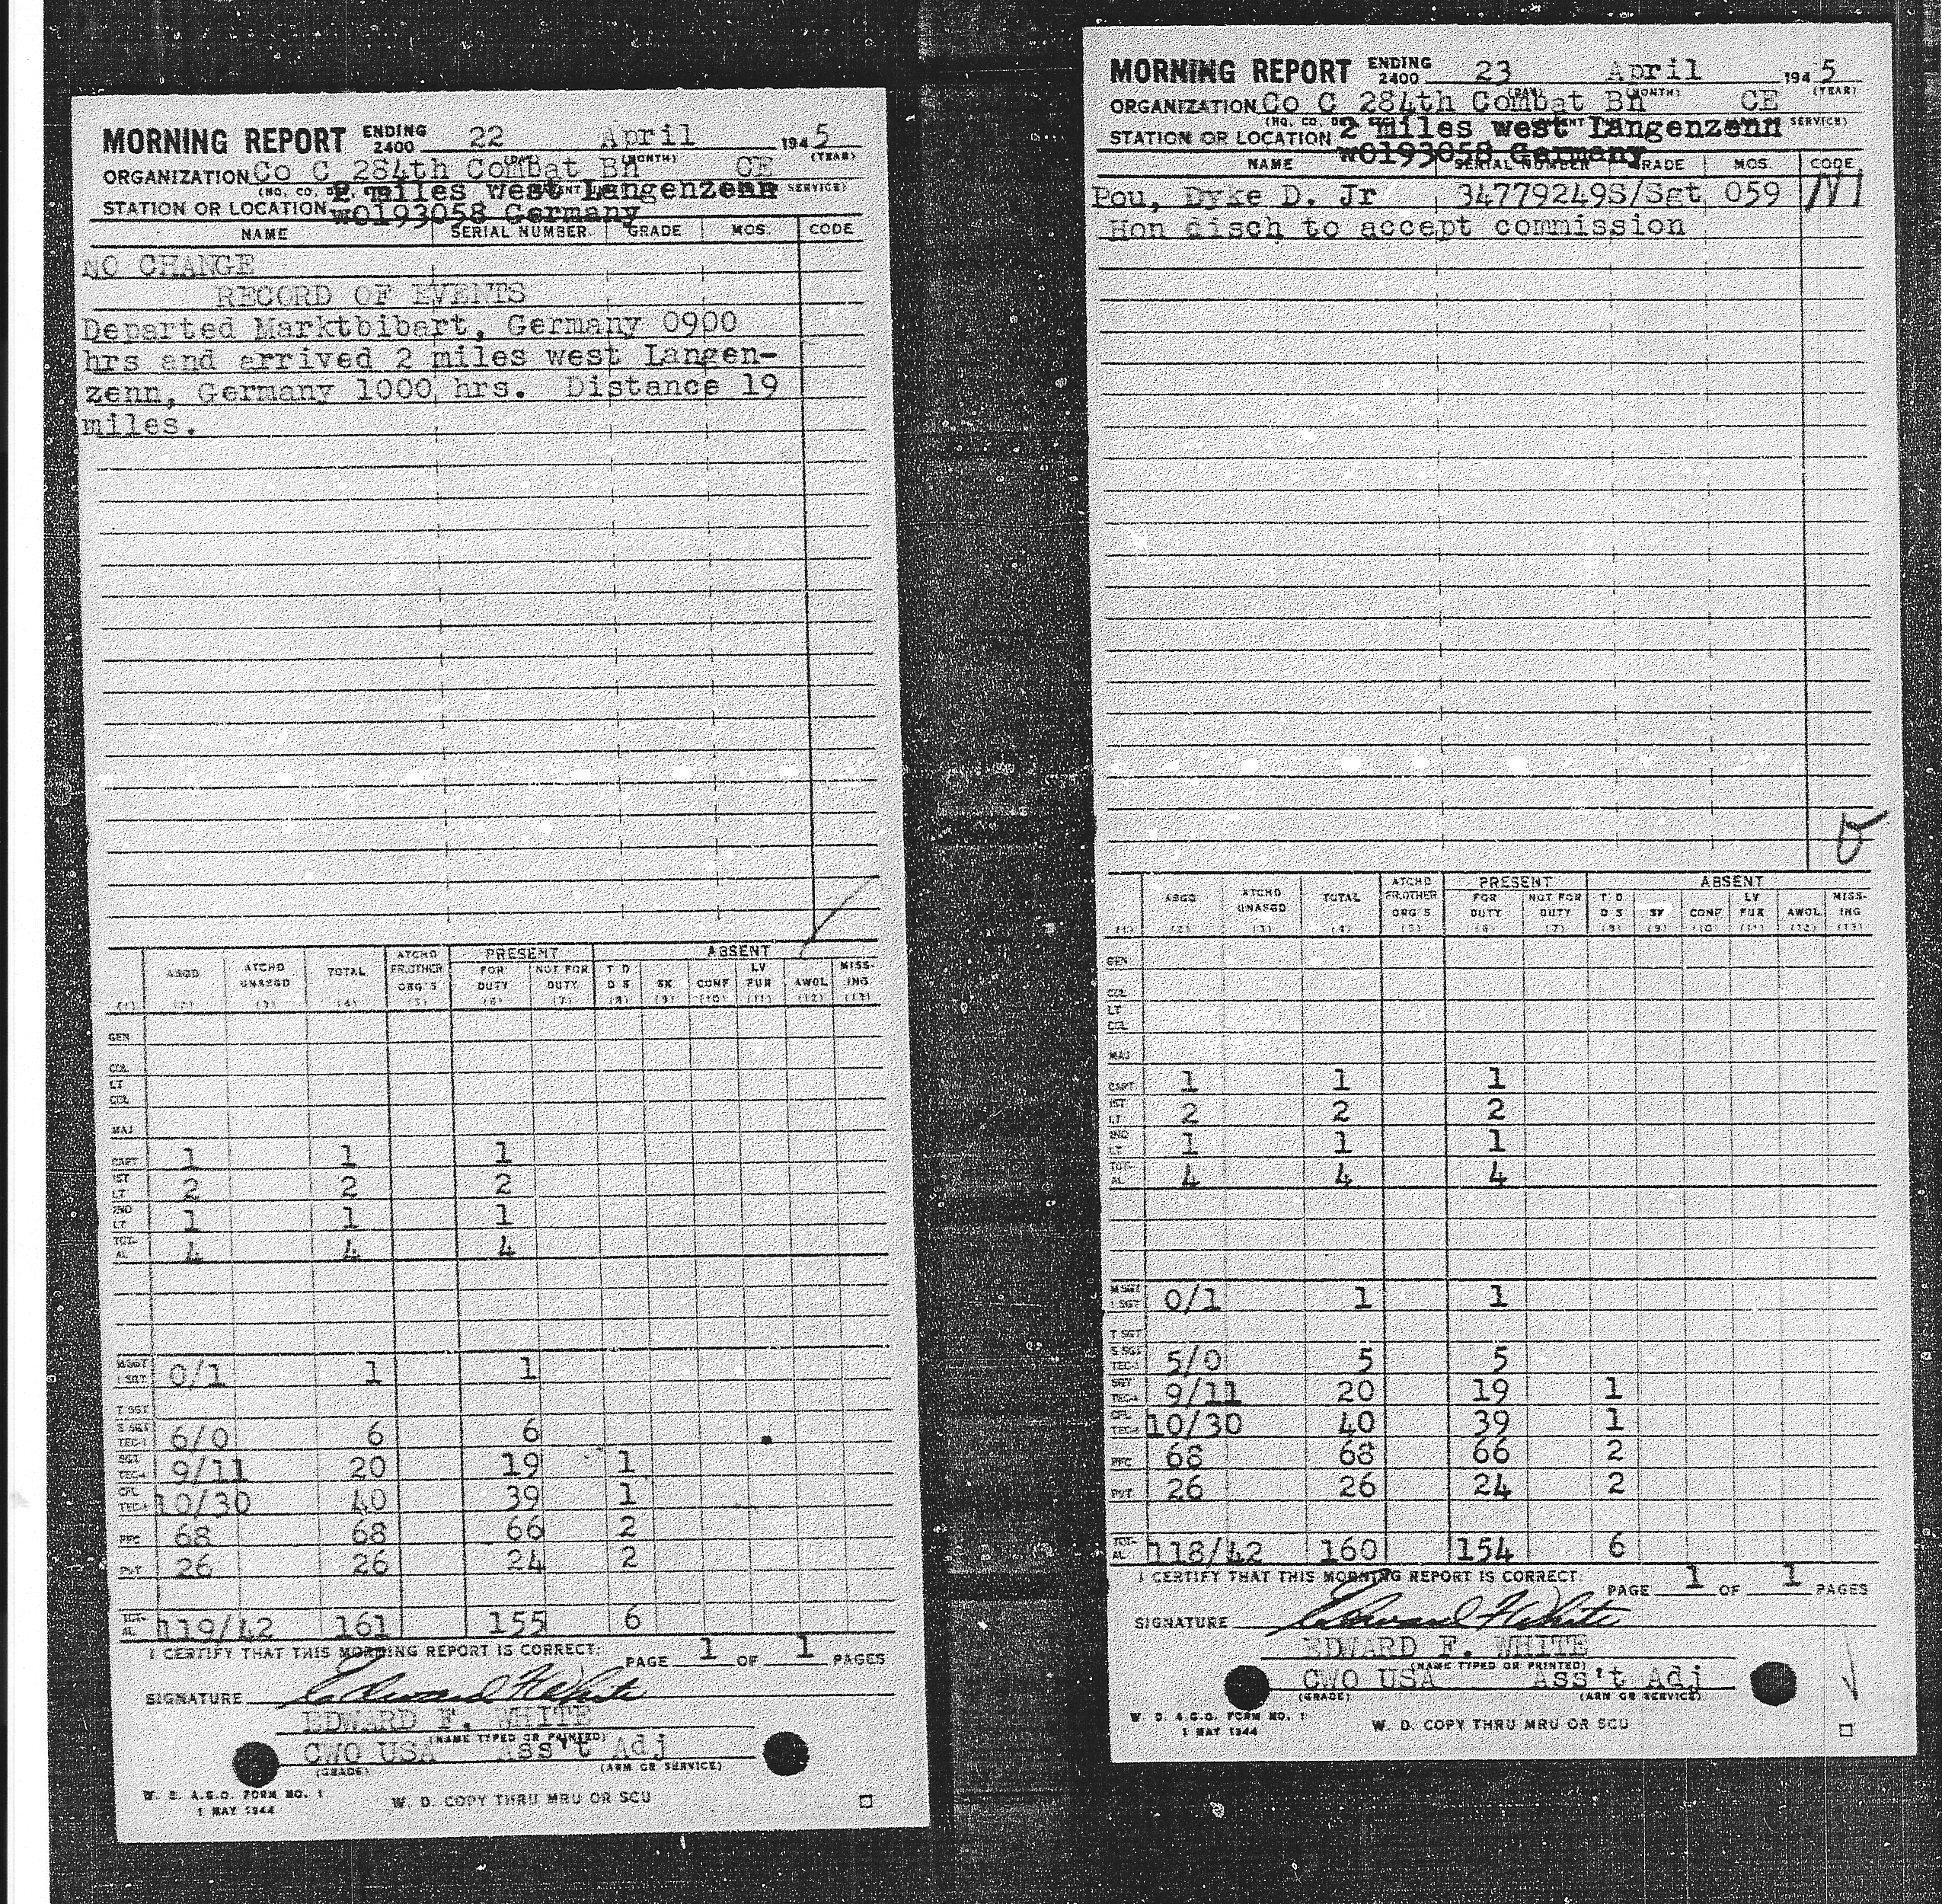 MORNING REPORT ENDING 2400 22 April 1945
(DAY) (MONTH) (YEAR)
ORGANIZATION Co C 284th Combat Bn CE
2 miles west Langenzenn SERVICE)
STATION OR LOCATION w0193058 Germany
NAME SERIAL NUMBER GRADE MOS. CODE
NO CHANGE
RECORD OF EVENTS
Departed Marktbibart, Germany 0900
hrs and arrived 2 miles west Langen-
zenn, Germany 1000 hrs. Distance 19
miles.
PRESENT ABSENT
ASGD ATCHD UNASGD TOTAL ATCHD FR.OTHER ORG'S FOR DUTY NOT FOR DUTY T D D S SK CONF LV FUR AWOL MISS-ING
(1) (2) (3) (4) (5) (6) (7) (8) (9) (10) (11) (12) (13)
GEN
COL
LT COL
MAJ
CAPT 1 1 1
1ST LT 2 2 2
2ND LT 1 1 1
TOT-AL 4 4 4
M SGT 1 SGT 0/1 1 1
T SGT
S SGT TEC-3 6/0 6 6
SGT TEC-4 9/11 20 19 1
CPL TEC-5 10/30 40 39 1
PFC 68 68 66 2
PVT 26 26 24 2
TOT-AL 119/42 161 155 6
I CERTIFY THAT THIS MORNING REPORT IS CORRECT.
PAGE 1 OF 1 PAGES
SIGNATURE Edward F White
EDWARD F. WHITE
(NAME TYPED OR PRINTED)
CWO USA Ass't Adj
(GRADE) (ARM OR SERVICE)
W. D. A.G.O. FORM NO. 1
1 MAY 1944
W. D. COPY THRU MRU OR SCU
MORNING REPORT ENDING 2400 23 April 1945
(DAY) (MONTH) (YEAR)
ORGANIZATION Co C 284th Combat Bn CE
STATION OR LOCATION 2 miles west Langenzenn SERVICE)
w0193058 Germany
NAME SERIAL NUMBER GRADE MOS. CODE
Pou, Dyke D. Jr 34779249 S/Sgt 059
Hon disch to accept commission
PRESENT ABSENT
ASGD ATCHD UNASGD TOTAL ATCHD FR.OTHER ORG'S FOR DUTY NOT FOR DUTY T D D S SK CONF LV FUR AWOL MISS-ING
(1) (2) (3) (4) (5) (6) (7) (8) (9) (10) (11) (12) (13)
GEN
COL
LT COL
MAJ
CAPT 1 1 1
1ST LT 2 2 2
2ND LT 1 1 1
TOT-AL 4 4 4
M SGT 1 SGT 0/1 1 1
T SGT
S SGT TEC-3 5/0 5 5
SGT TEC-4 9/11 20 19 1
CPL TEC-5 10/30 40 39 1
PFC 68 68 66 2
PVT 26 26 24 2
TOT-AL 118/42 160 154 6
I CERTIFY THAT THIS MORNING REPORT IS CORRECT.
PAGE 1 OF 1 PAGES
SIGNATURE Edward F White
EDWARD F. WHITE
(NAME TYPED OR PRINTED)
CWO USA Ass't Adj
(GRADE) (ARM OR SERVICE)
W. D. A.G.O. FORM NO. 1
1 MAY 1944
W. D. COPY THRU MRU OR SCU